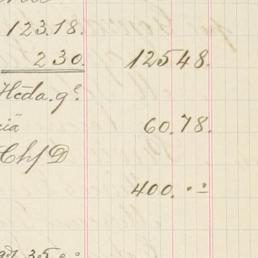 123.18.
230. 12548.
Heda. g.
cia 60.78.
Chf D
400.
35